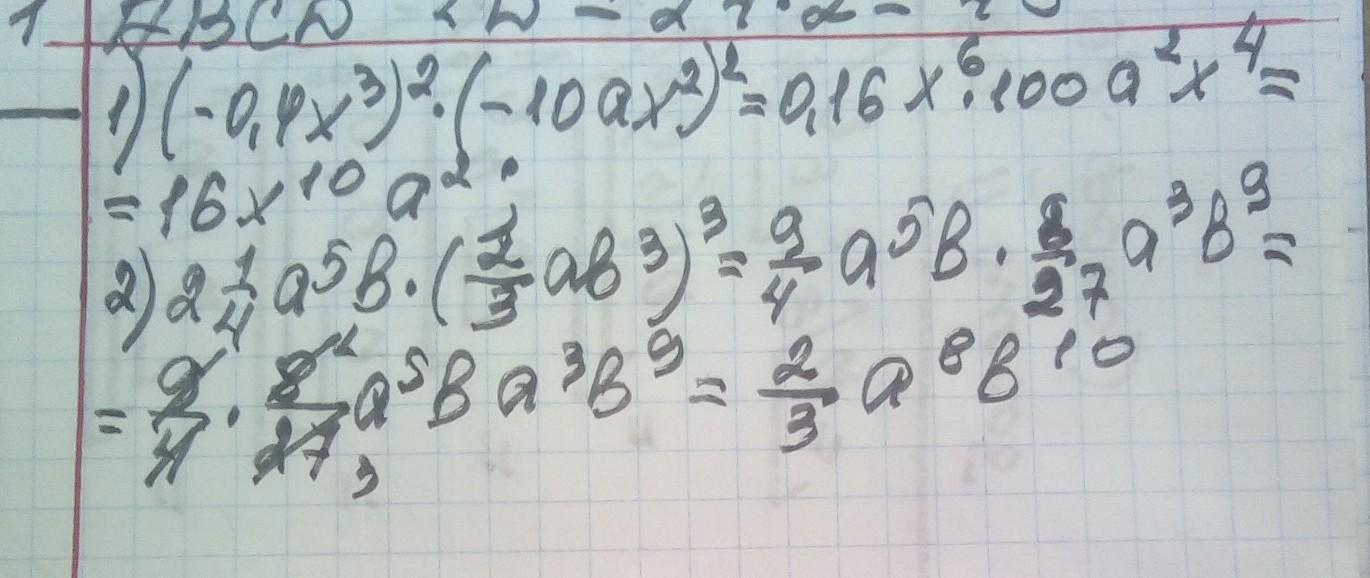 1) (-0,4x³)²·(-10ax²)²=0,16x⁶·100a²x⁴=
=16x¹⁰a².
2) 2 1/4 a⁵b·(2/3 ab³)³= 9/4 a⁵b · 8/27 a³b⁹=
= 9/4 · 8/27 a⁵b a³b⁹ = 2/3 a⁸b¹⁰